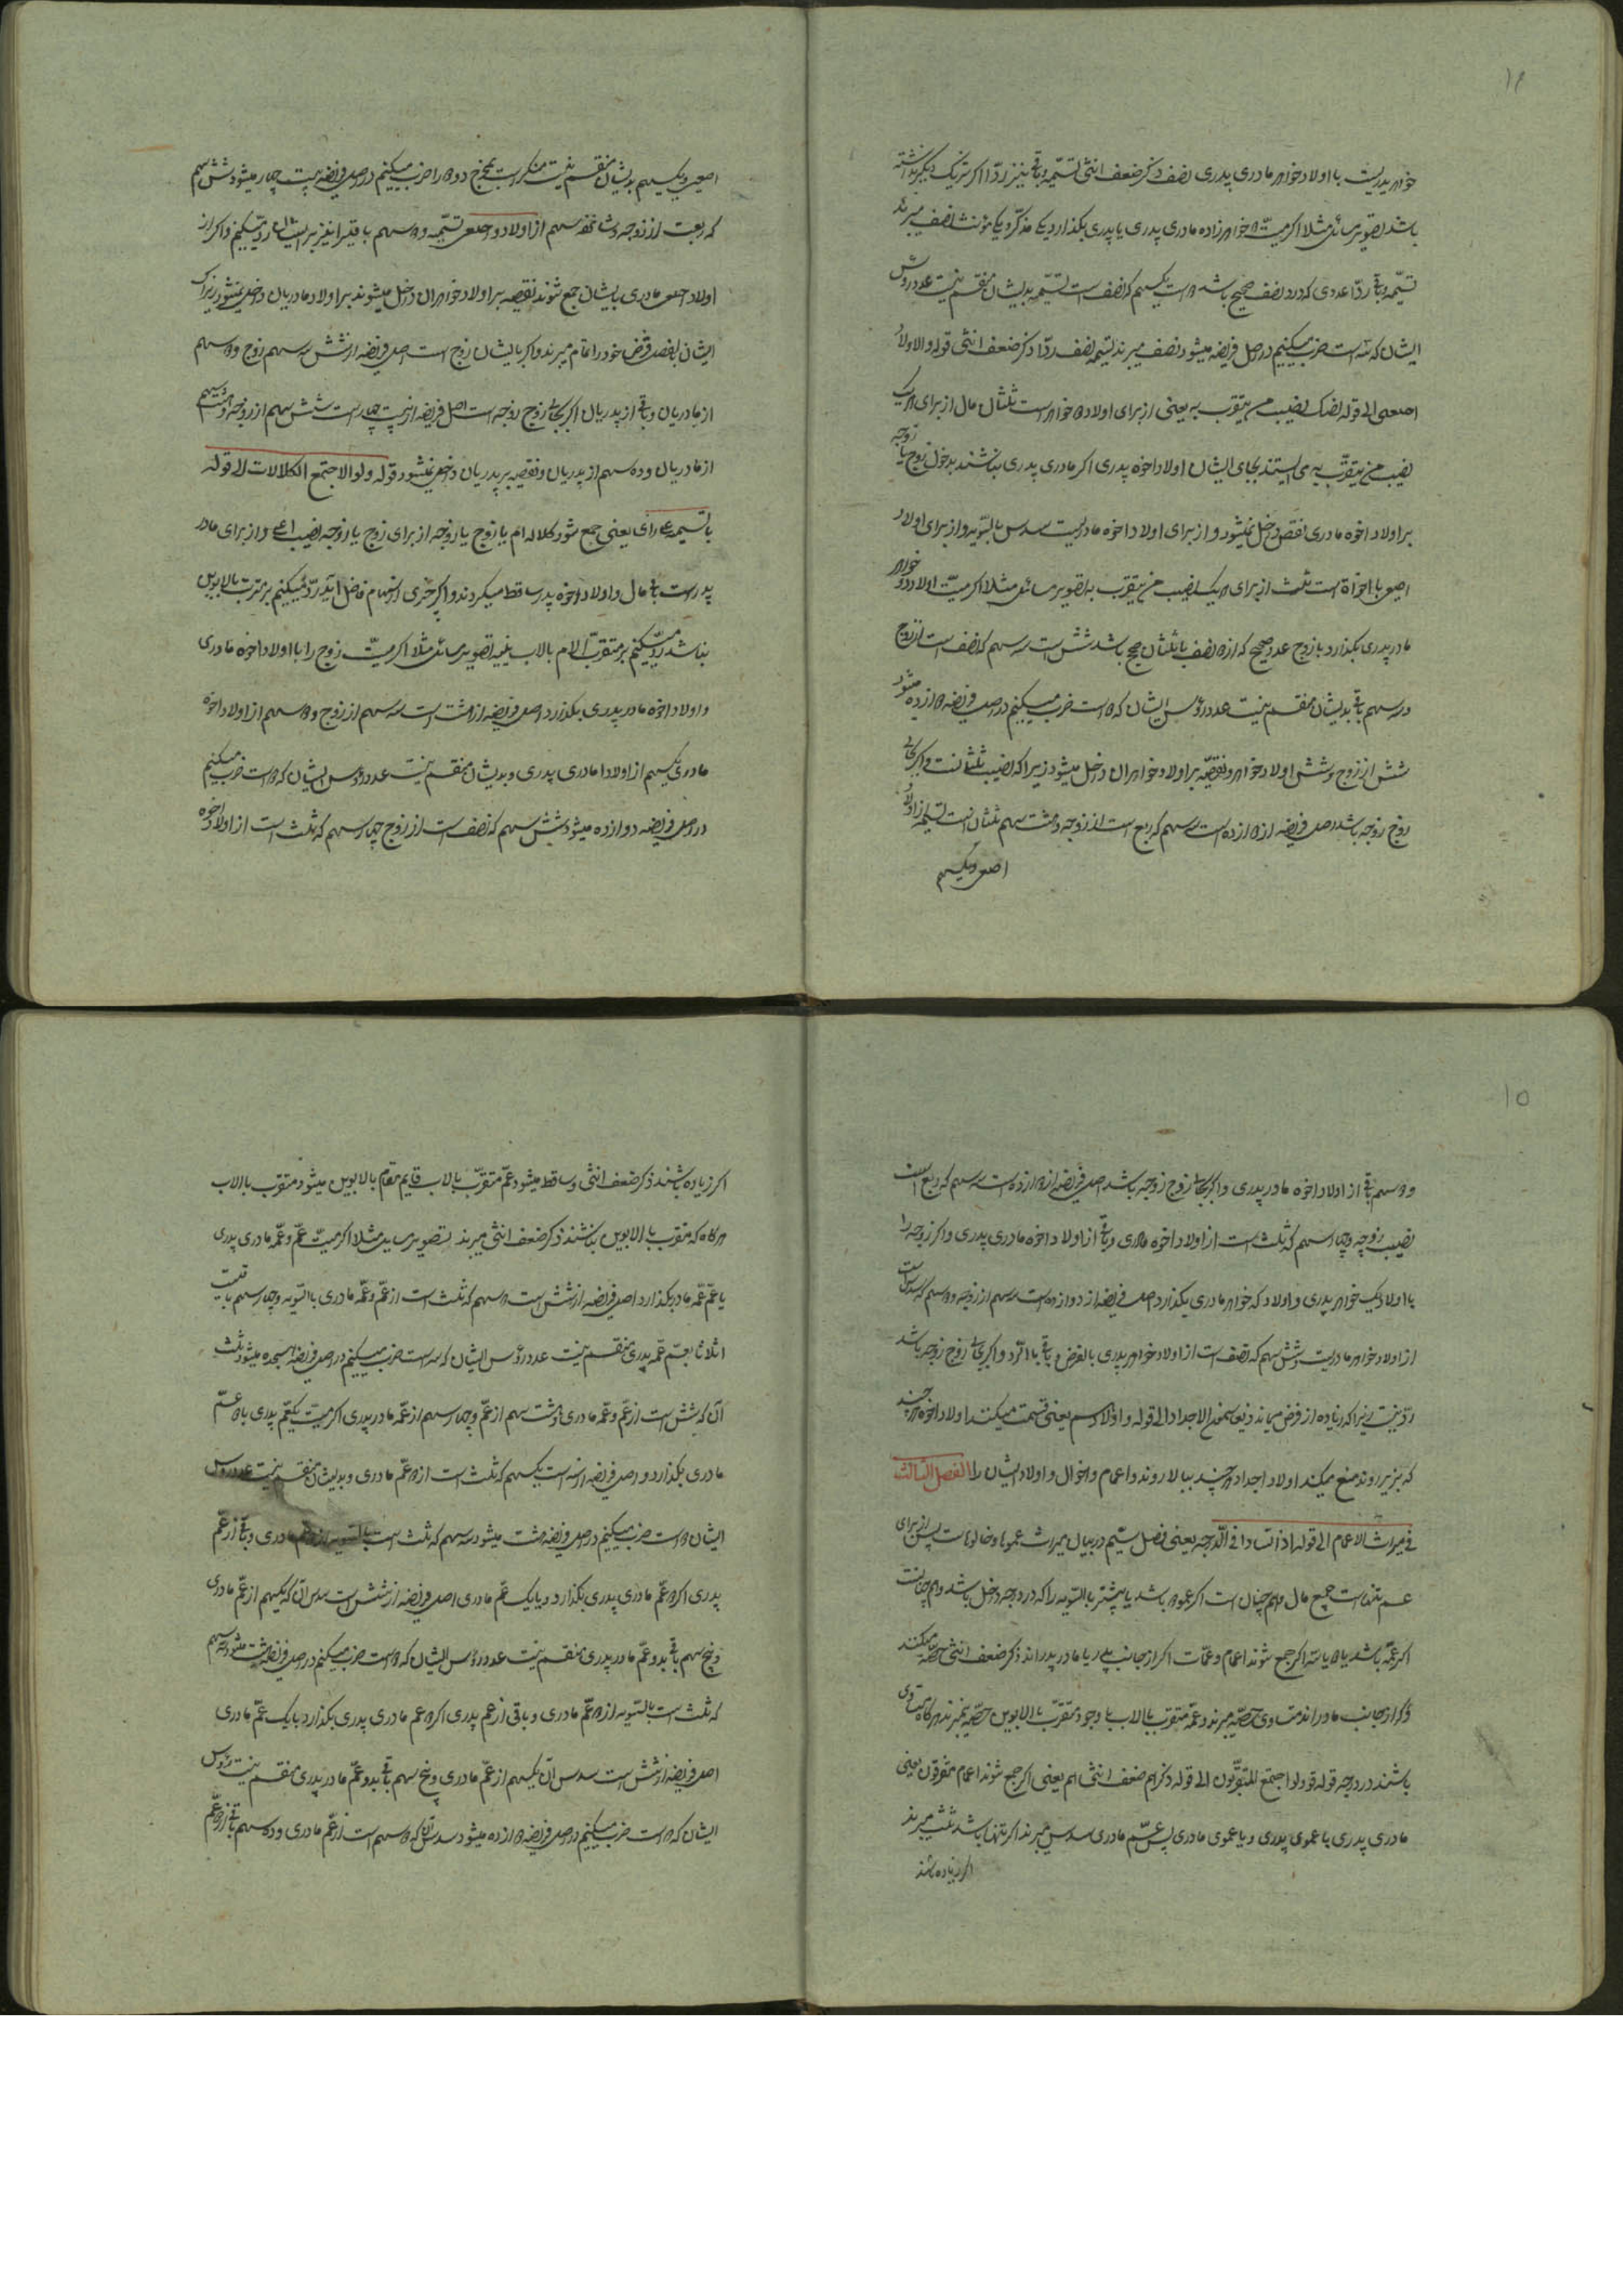 ۱۴
خواهر پدریست با اولاد خواهر مادری پدری نصف ذکر ضعف انثی تسمیّه و باقی نیز ردّا اگر شریک دیگر نداشته
باشد تصویر مسائل مثلا اگر میّت خواهرزاده مادری پدری یا پدری بگذارد یکی مذکّر و یکی مونث نصف میبرند
تسمیّه و باقی ردّا عددی که درو نصف صحیح باشد است یکسهم که نصف است تسمیّه بدیشان منقسم نیست عدد رؤس
ایشان که سه است ضرب میکنیم در اصل فریضه میشود نصف میبرند تسمیه نصف ردّا ذکر ضعف انثی قوله و لاولاد
الی قوله نصیب من یتقرب به یعنی از برای اولاد خواهر است ثلثان مال از برای هر یک
نصیب من یتقرّب به می ایستند بجای ایشان اولاد اخوه پدری اگر مادری پدری نباشند بدخول زوج یا زوجه
بر اولاد اخوه مادری نقص داخل نمیشود و از برای اولاد اخوه مادریست سدس بالسّویه و از برای اولاد
با اخوة است ثلث از برای هر یک نصیب من یتقرب به تصویر مسائل مثلا اگر میّت اولاد دو خواهر
مادر پدری بگذارد با زوج عدد صحیح که ازو نصف با ثلثان صحیح باشد شش است سه سهم که نصف است از زوج
و سه سهم باقی بدیشان منقسم نیست عدد رؤس ایشان که است ضرب میکنیم در اصل فریضه دوازده میشود
شش از زوج و شش اولاد خواهر و نقیصه بر اولاد خواهران داخل میشود زیرا که نصیب ثلثانست و اگر بجای
زوج زوجه باشد اصل فریضه از دوازده است سه سهم که ربع است از زوجه و هشت سهم ثلثان است تسمیه از اولاد
و یکسهم
و یکسهم بدیشان منقسم نیست منکسر است بمخرج دو را ضرب میکنیم در اصل فریضه بیست چهار میشود شش سهم
که ربعست از زوجه و شانزده سهم از اولاد تسمیّه و دو سهم باقی را نیز بر ایشان ردّ میکنیم و اگر از
اولاد مادری بایشان جمع شوند نقیصه بر اولاد خواهران داخل میشوند بر اولاد مادریان داخل نمیشود زیرا که
ایشان فرض خود را تمام میبرند و اگر بایشان زوج است اصل فریضه از شش سه سهم زوج و دو سهم
از مادریان و باقی از پدریان اگر بجای زوج زوجه است اصل فریضه از بیست چهار است شش سهم از زوجه و هشت سهم
از مادریان و ده سهم از پدریان و نقیصه بر پدریان داخل نمیشود قوله و لو الاجتمع الکلالات الی قوله
یعنی جمع شود کلاله ام با زوج یا زوجه از برای زوج یا زوجه نصیب اعلی و از برای مادر
پدر است باقی مال و اولاد اخوه پدر ساقط میگردند و اگر چیزی از سهام فاضل آید ردّ میکنیم بر متقرب بالابوین
نباشد ردّ میکنیم بر متقرّب الام بالاب تصویر مسائل مثلا اگر میّت زوج را با اولاد اخوه مادری
و اولاد اخوه مادر پدری بگذارد اصل فریضه از است سه سهم از زوج و دو سهم از اولاد اخوه
مادری یکسهم از اولاد مادری پدری و بدیشان منقسم نیست عدد رؤس ایشان که است ضرب میکنیم
در اصل فریضه دوازده میشود شش سهم که نصف است از زوج چهار سهم که ثلث است از اولاد اخوه
۱۵
و دو سهم باقی از اولاد اخوه مادر پدری و اگر بجای زوج زوجه باشد اصل فریضه از دوازده است سه سهم که ربع است
نصیب زوجه و چهار سهم که ثلث است از اولاد اخوه مادری و باقی از اولاد اخوه مادری پدری و اگر زوجه را
با اولاد یک خواهر پدری و اولاد که خواهر مادری بگذارد اصل فریضه از دوازده است سه سهم از زوجه و دو سهم که سدس است
از اولاد خواهر مادریست و شش سهم که نصف است از اولاد خواهر پدری بالفرض و باقی بالرّد و اگر بجای زوج زوجه باشد
ردّ نیست زیرا که زیاده از فرض نمیماند الاجداد الی قوله و اولادهم یعنی قسمت میکنند اولاد اخوه هر چند
که بزیر روند منع میکند اولاد اجداد هر چند ببالا روند و اعمام و اخوال و اولاد ایشان را الفصل الثالث
فی میراث الاعمام الی قوله اذا تساووا فی الدّرجه یعنی فصل سیّم در بیان میراث عموها و خالوهاست پس از برای
عم تنهاست جمیع مال و هم چنان است اگر عمو باشد یا بیشتر بالسّویه را که در درجه داخل باشد و هم چنانست
اگر عمّه باشد یا دو یا سه اگر جمع شوند اعمام و عمّات اگر از جانب پدر یا مادر پدراند ذکر ضعف انثی حصّه میکنند
و اگر از جانب مادراند متساوی حصّه میبرند و عمّه متقرّب بالاب با وجود متقرّب بالابوین حصّه نمیبرند هر گاه متساوی
باشند در درجه قوله و لو اجتمع المتفرّقون الی قوله ذکرهم ضعف انثیهم یعنی اگر جمع شوند اعمام متفرقون یعنی
مادری پدری با عموی پدری و یا عموی مادری پس عمّ مادری سدس میبرند اگر تنها باشد ثلث میبرند
اگر زیاده باشند
اگر زیاده باشند ذکر ضعف انثی و ساقط میشود عمّ متقرّب بالاب قایم مقام بالابوین میشود متقرب بالاب
هر گاه که متقرب بالابوین نباشند ذکر ضعف انثی میبرند تصویر مسایل مثلا اگر میّت عمّ و عمّه مادری پدری
با عمّ عمّه مادر بگذارد اصل فریضه از شش است دو سهم که ثلث است از عمّ و عمّه مادری بالسّویه و چهار سهم باقیست
اثلاثا بعمّ عمّه پدری منقسم نیست عدد رؤس ایشان که سه است ضرب میکنیم در اصل فریضه هیجده میشود ثلث
آن که شش است از عمّ و عمّه مادری و هشت سهم از عمّ و چهار سهم از عمّه مادر پدری اگر میّت یکعمّ پدری با دو عمّ
مادری بگذارد و اصل فریضه از سه است یکسهم که ثلث است از دو عمّ مادری و بدیشان منقسم نیست عدد رؤس
ایشان است ضرب میکنیم در اصل فریضه میشود سهم که ثلث است بالسّویه از دو عمّ مادری و باقی از عمّ
پدری اگر دو عمّ مادری پدری بگذارد و با یک عمّ مادری اصل فریضه از شش است سدس آن که یکسهم از عمّ مادری
و پنج سهم باقی بدو عمّ مادر پدری منقسم نیست عدد رؤس ایشان که دو است ضرب میکنیم در اصل فریضه میشود
که ثلث است بالسّویه از دو عمّ مادری و باقی از عم پدری اگر دو عم مادری پدری بگذارد با یک عمّ مادری
اصل فریضه از شش است سدس آن یکسهم از عمّ مادری و پنج سهم باقی بدو عمّ مادر پدری منقسم نیست رؤس
ایشان که دو است ضرب میکنیم در اصل فریضه دوازده میشود سدس آن که دو سهم است از عمّ مادری و ده سهم باقی از دو عمّ